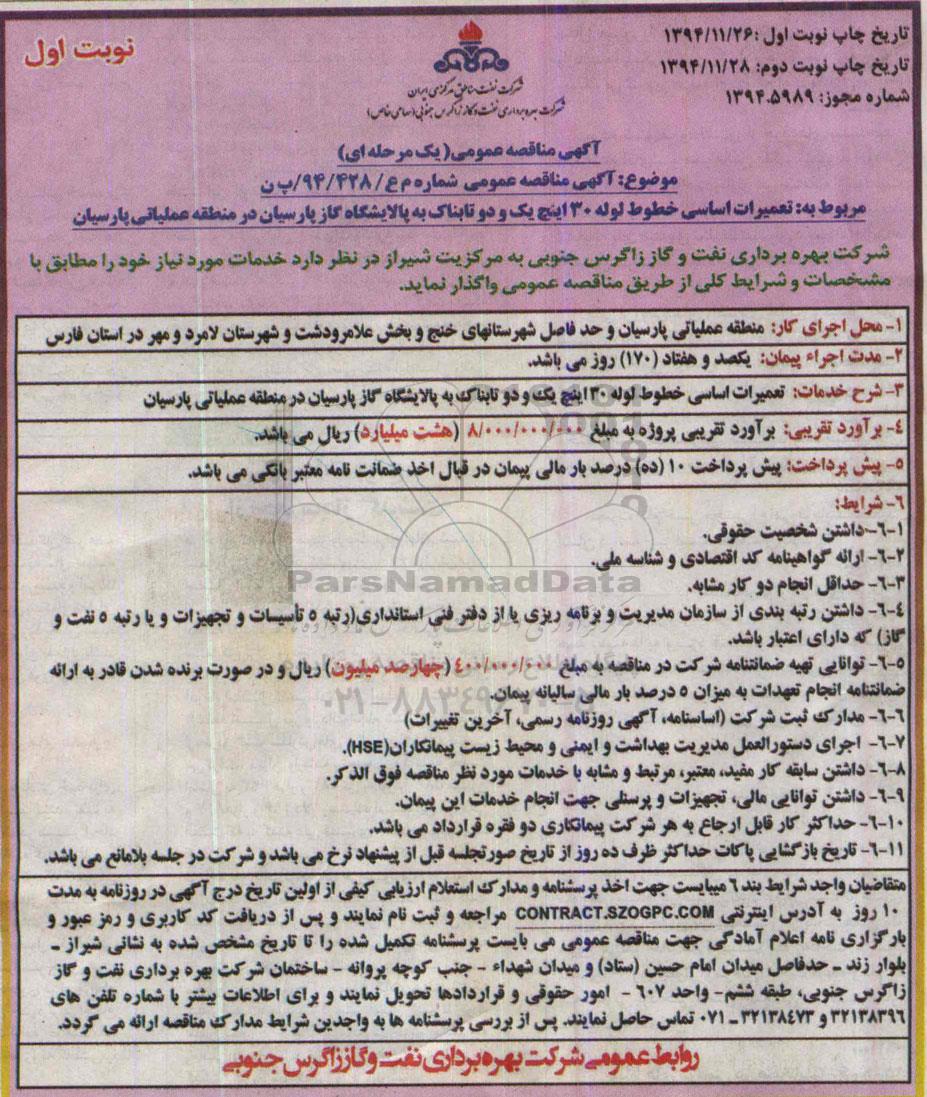 تاریخ چاپ نوبت اول :۱۳۹۴/۱۱/۲۶
تاریخ چاپ نوبت دوم: ۱۳۹۴/۱۱/۲۸
شماره مجوز: ۱۳۹۴.۵۹۸۹
نوبت اول
شرکت نفت مناطق مرکزی ایران
شرکت بهره برداری نفت و گاز زاگرس جنوبی (سهامی خاص)
آگهی مناقصه عمومی( یک مرحله ای)
موضوع: آگهی مناقصه عمومی شماره م ع/ ۹۴/۴۲۸/پ ن
مربوط به: تعمیرات اساسی خطوط لوله ۳۰ اینچ یک و دو تابناک به پالایشگاه گاز پارسیان در منطقه عملیاتی پارسیان
شرکت بهره برداری نفت و گاز زاگرس جنوبی به مرکزیت شیراز در نظر دارد خدمات مورد نیاز خود را مطابق با
مشخصات و شرایط کلی از طریق مناقصه عمومی واگذار نماید.
۱- محل اجرای کار: منطقه عملیاتی پارسیان و حد فاصل شهرستانهای خنج و بخش علامرودشت و شهرستان لامرد و مهر در استان فارس
۲- مدت اجراء پیمان: یکصد و هفتاد (۱۷۰) روز می باشد.
۳- شرح خدمات: تعمیرات اساسی خطوط لوله ۳۰ اینچ یک و دو تابناک به پالایشگاه گاز پارسیان در منطقه عملیاتی پارسیان
۴- برآورد تقریبی: برآورد تقریبی پروژه به مبلغ ۸/۰۰۰/۰۰۰/۰۰۰ (هشت میلیارد) ریال می باشد.
۵- پیش پرداخت: پیش پرداخت ۱۰ (ده) درصد بار مالی پیمان در قبال اخذ ضمانت نامه معتبر بانکی می باشد.
۶- شرایط:
۶-۱- داشتن شخصیت حقوقی.
۶-۲- ارائه گواهینامه کد اقتصادی و شناسه ملی.
۶-۳- حداقل انجام دو کار مشابه.
۶-۴- داشتن رتبه بندی از سازمان مدیریت و برنامه ریزی یا از دفتر فنی استانداری(رتبه ۵ تأسیسات و تجهیزات و یا رتبه ۵ نفت و
گاز) که دارای اعتبار باشد.
۶-۵- توانایی تهیه ضمانتنامه شرکت در مناقصه به مبلغ ۴۰۰/۰۰۰/۰۰۰ (چهارصد میلیون) ریال و در صورت برنده شدن قادر به ارائه
ضمانتنامه انجام تعهدات به میزان ۵ درصد بار مالی سالیانه پیمان.
۶-۶- مدارک ثبت شرکت (اساسنامه، آگهی روزنامه رسمی، آخرین تغییرات)
۶-۷- اجرای دستورالعمل مدیریت بهداشت و ایمنی و محیط زیست پیمانکاران(HSE).
۶-۸- داشتن سابقه کار مفید، معتبر، مرتبط و مشابه با خدمات مورد نظر مناقصه فوق الذکر.
۶-۹- داشتن توانایی مالی، تجهیزات و پرسنلی جهت انجام خدمات این پیمان.
۶-۱۰- حداکثر کار قابل ارجاع به هر شرکت پیمانکاری دو فقره قرارداد می باشد.
۶-۱۱- تاریخ بازگشایی پاکات حداکثر ظرف ده روز از تاریخ صورتجلسه قبل از پیشنهاد نرخ می باشد و شرکت در جلسه بلامانع می باشد.
متقاضیان واجد شرایط بند ۶ میبایست جهت اخذ پرسشنامه و مدارک استعلام ارزیابی کیفی از اولین تاریخ درج آگهی در روزنامه به مدت
۱۰ روز به آدرس اینترنتی CONTRACT.SZOGPC.COM مراجعه و ثبت نام نمایند و پس از دریافت کد کاربری و رمز عبور و
بارگزاری نامه اعلام آمادگی جهت مناقصه عمومی می بایست پرسشنامه تکمیل شده را تا تاریخ مشخص شده به نشانی شیراز -
بلوار زند - حدفاصل میدان امام حسین (ستاد) و میدان شهداء - جنب کوچه پروانه - ساختمان شرکت بهره برداری نفت و گاز
زاگرس جنوبی، طبقه ششم- واحد ۶۰۷ - امور حقوقی و قراردادها تحویل نمایند و برای اطلاعات بیشتر با شماره تلفن های
۳۲۱۳۸۳۹۶ و ۳۲۱۳۸۴۷۳ - ۰۷۱ تماس حاصل نمایند. پس از بررسی پرسشنامه ها به واجدین شرایط مدارک مناقصه ارائه می گردد.
روابط عمومی شرکت بهره برداری نفت و گاز زاگرس جنوبی
ParsNamadData